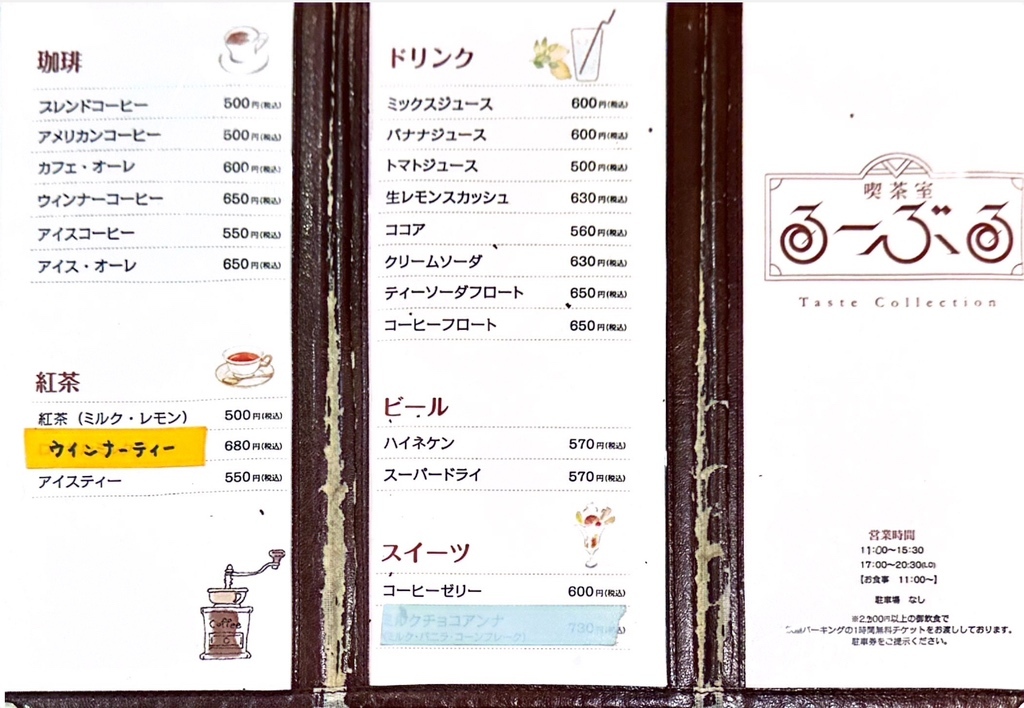 珈琲
ブレンドコーヒー 500円(税込)
アメリカンコーヒー 500円(税込)
カフェ・オーレ 600円(税込)
ウィンナーコーヒー 650円(税込)
アイスコーヒー 550円(税込)
アイス・オーレ 650円(税込)
紅茶
紅茶（ミルク・レモン） 500円(税込)
ウインナーティー 680円(税込)
アイスティー 550円(税込)
Coffee
ドリンク
ミックスジュース 600円(税込)
バナナジュース 600円(税込)
トマトジュース 500円(税込)
生レモンスカッシュ 630円(税込)
ココア 560円(税込)
クリームソーダ 630円(税込)
ティーソーダフロート 650円(税込)
コーヒーフロート 650円(税込)
ビール
ハイネケン 570円(税込)
スーパードライ 570円(税込)
スイーツ
コーヒーゼリー 600円(税込)
ミルクチョコアンナ 730円(税込)
(ミルク・バニラ・コーンフレーク)
喫茶室
るーぶる
Taste Collection
営業時間
11:00〜15:30
17:00〜20:30(LO)
【お食事 11:00〜】
駐車場 なし
※2,200円以上の御飲食で
パーキングの1時間無料チケットをお渡ししております。
駐車券をご提示ください。